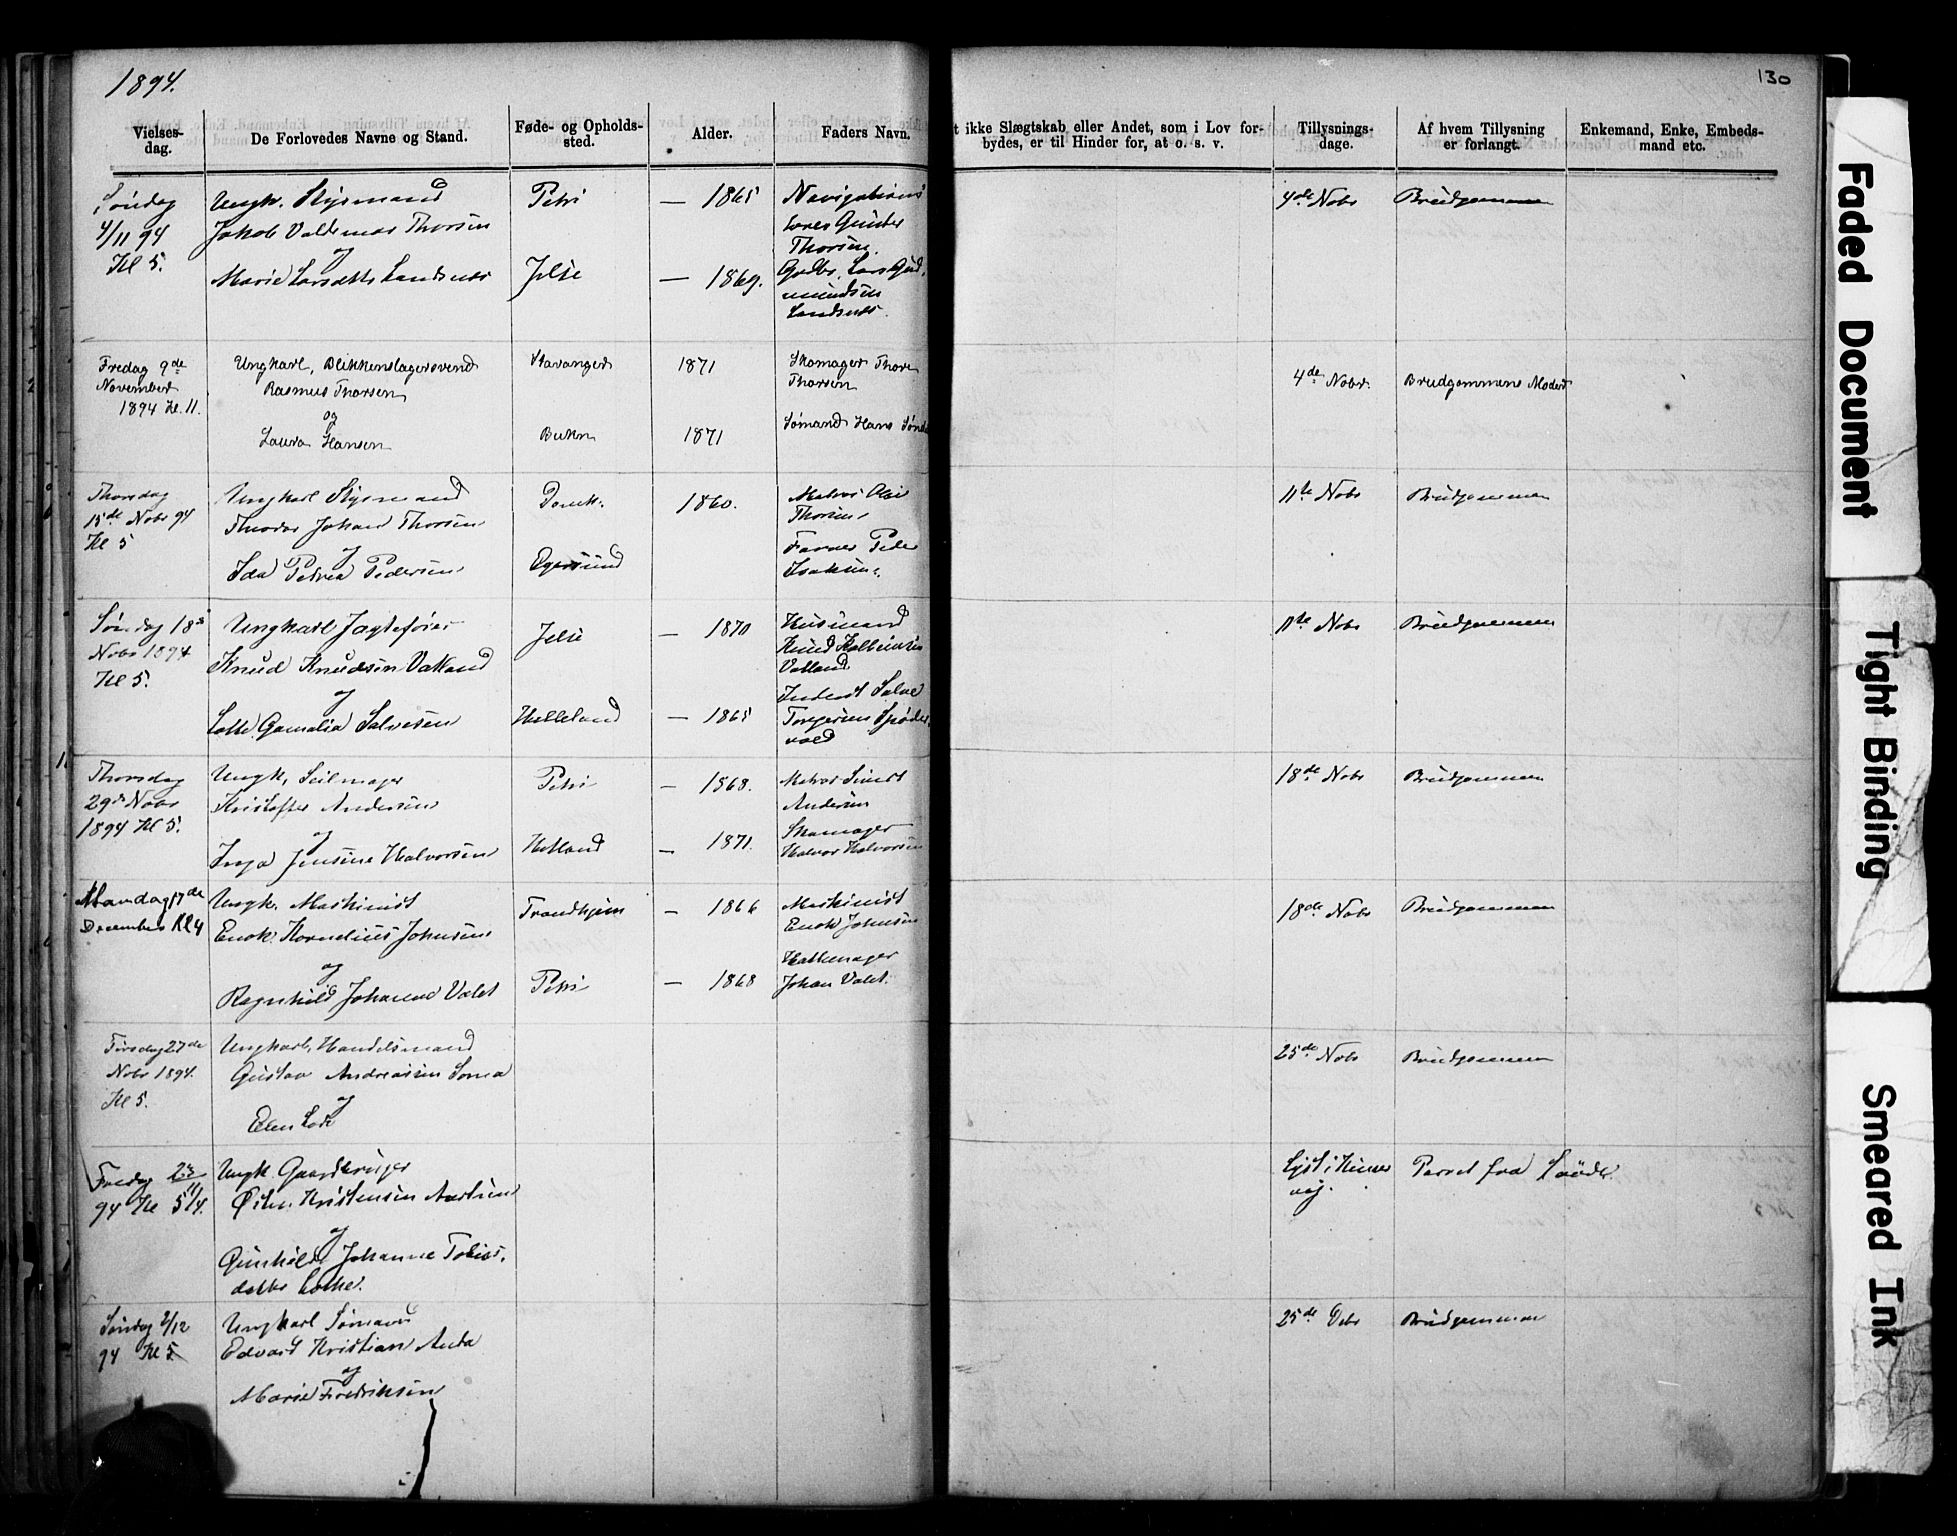 1894.
130
Vielses-
dag.
De Forlovedes Navne og Stand.
Føde- og Opholds-
sted.
Alder.
Faders Navn.
t ikke Slægtskab eller Andet, som i Lov for-
bydes, er til Hinder for, at o. s. v.
Tillysnings-
dage.
Af hvem Tillysning
er forlangt.
Enkemand, Enke, Embeds-
mand etc.
Søndag
4/11 94
Kl 5.
Ungk. Stysmand
Jakob Valdemar Thorsen
og
Marie Larsdatter Landsnes
Petri
Jelse
— 1865
— 1869.
Navigations
Thorsen.
Landsnes.
4de Nobr
Brudgommen
Fredag 9de
November
1894 Kl. 11.
Ungkarl, Blikkenslagersvend
Rasmus Thorsen
og
Laura Hansen
Stavanger
Bukn
1871
1871
Skomager Thore
Thorsen
Sømand Hans
4de Nobr.
Brudgommens Moder
Thorsdag
15de Nobr 94
Kl 5
Ungkarl Stysmand
Theodor Johan Thorsen
og
Ida Petrea Pedersen
Domk.
Egersund
1860.
Thorsen
Farver Peder
Isaksen.
11te Nobr
Brudgommen
Søndag 18de
Nobr 1894
Kl 5.
Ungkarl Jagtefører
Knud Knudsen Vatland
og
Lotte Gamalia Salvesen
Jelse
Helleland
— 1870
— 1865
Husmand
Vatland
11te Nobr
Brudgommen
Thorsdag
29de Nobr
1894 Kl 5.
Ungk. Seilmager
Kristoffer Andersen
og
Inga Jensine Halvorsen
Petri
Hetland
— 1868.
— 1871.
Andersen
Skomager
Halvor Halvorsen
18de Nobr
Brudgommen
Mandag 17de
December Kl 4
Ungk. Maskinist
Enok Kornelius Johnsen
og
Ragnhild Johanne Valet
Trondhjem
Petri
— 1866
— 1868
Maskinist
Enok Johnsen
Hattemager
Johan Valet.
18de Nobr
Brudgommen
Tirsdag 27de
Nobr 1894.
Kl 5.
Ungkarl, Handelsmand
Gustav Andreassen Soma
og
Elen Lode
25de Nobr
Brudgommen
Fredag 23/11
94 Kl 5 1/4.
Ungk Gaardbruger
Kristensen
og
Gunhild Johanne Tobias-
datter
Lyst i
Brudgommen
Søndag 2/12
94 Kl 5
Ungkarl Sømand
Edvard Kristian Anda
og
Marie Fredriksen
25de
Brudgommen
Faded Document
Tight Binding
Smeared Ink